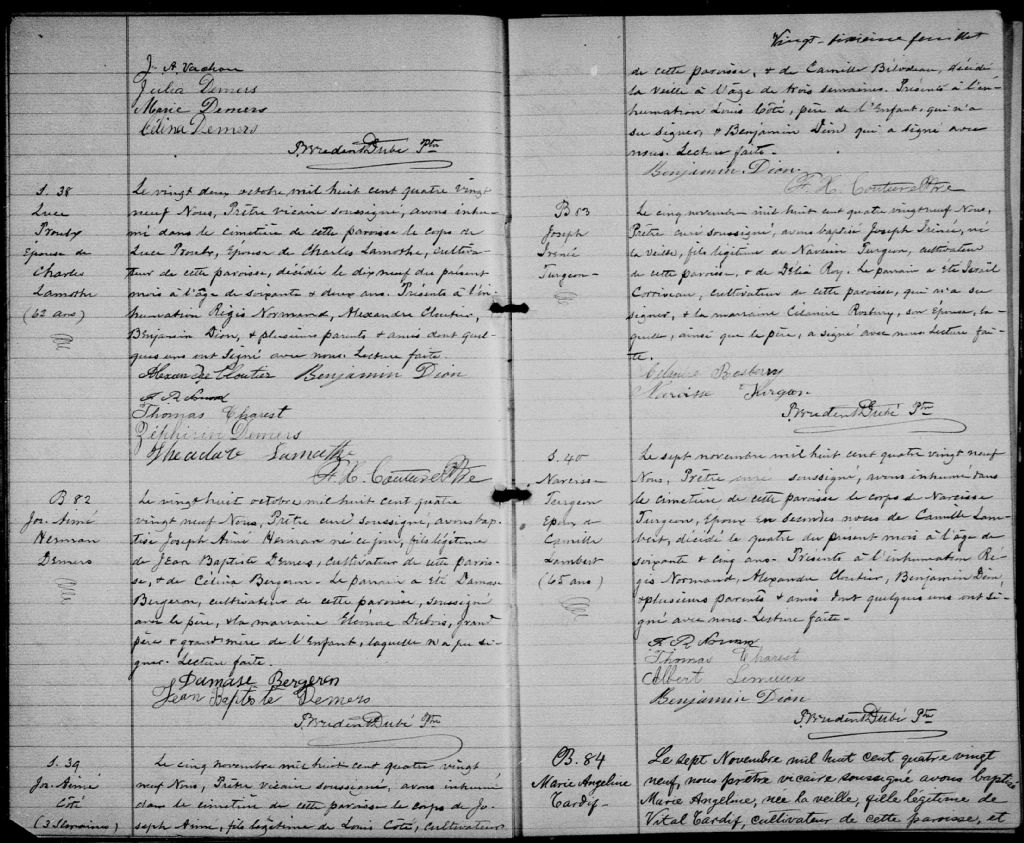 J. A. Vachon
Julia Demers
Marie Demers
Célina Demers
Prudent Dubé Ptre
S. 38
Luce
Proulx
Epouse de
Charles
Lamothe
(62 ans)
Le vingt deux octobre mil huit cent quatre vingt
neuf Nous, Prêtre vicaire soussigné, avons inhu-
mé dans le cimetière de cette paroisse le corps de
Luce Proulx, Epouse de Charles Lamothe, cultiva-
teur de cette paroisse, décédée le dix neuf du présent
mois à l'âge de soixante & deux ans. Présents à l'in-
humation Régis Normand, Alexandre Cloutier,
Benjamin Dion, & plusieurs parents & amis dont quel-
ques uns ont signé avec nous. Lecture faite.
Alexandre Cloutier Benjamin Dion
Thomas Charest
Zéphirin Demers
Theadore Lamothe
F. X. Couture Ptre
B 82
Jos. Aimé
Herman
Demers
Le vingt huit octobre mil huit cent quatre
vingt neuf Nous, Prêtre curé soussigné, avons bap-
tisé Joseph Aimé Herman né ce jour, fils légitime
de Jean Baptiste Demers, cultivateur de cette parois-
se, & de Célina Bergeron. Le parrain a été Damase
Bergeron, cultivateur de cette paroisse, soussigné
avec le père, & la marraine Eléonore Dubois, grand
père & grand'mère de l'Enfant, laquelle n'a pu si-
gner. Lecture faite.
Damase Bergeron
Jean Baptiste Demers
Prudent Dubé Ptre
S. 39
Jos. Aimé
Côté
(3 Semaines)
Le cinq novembre mil huit cent quatre vingt
neuf Nous, Prêtre vicaire soussigné, avons inhumé
dans le cimetière de cette paroisse le corps de Jo-
seph Aimé, fils légitime de Louis Côté, cultivateur
Vingt-sixième feuillet
de cette paroisse, & de Camille Bilodeau, décédé
la veille à l'âge de trois semaines. Présents à l'in-
humation Louis Côté, père de l'Enfant, qui n'a
su signer, & Benjamin Dion qui a signé avec
nous. Lecture faite.
Benjamin Dion
F. X. Couture Ptre
B 83
Joseph
Irénée
Turgeon
Le cinq novembre mil huit cent quatre vingt neuf Nous,
Prêtre curé soussigné, avons baptisé Joseph Irénée, né
la veille, fils légitime de Narcisse Turgeon, cultivateur
de cette paroisse, & de Délia Roy. Le parrain a été Israël
Corriveau, cultivateur de cette paroisse, qui n'a su
signer, & la marraine Célanire Rosbery, son Epouse, la-
quelle, ainsi que le père, a signé avec nous Lecture fai-
te.
Narcisse Turgeon
Prudent Dubé Ptre
S. 40
Narcisse
Turgeon
Epoux de
Camille
Lambert
(65 ans)
Le sept novembre mil huit cent quatre vingt neuf
Nous, Prêtre curé soussigné, avons inhumé dans
le cimetière de cette paroisse le corps de Narcisse
Turgeon, Epoux En secondes noces de Camille Lam-
bert, décédé le quatre du présent mois à l'âge de
soixante & cinq ans. Présents à l'inhumation Ré-
gis Normand, Alexandre Cloutier, Benjamin Dion,
& plusieurs parents & amis dont quelques uns ont si-
gné avec nous. Lecture faite.
Thomas Charest
Albert Lemieux
Benjamin Dion
Prudent Dubé Ptre
B. 84
Marie Angeline
Tardif
Le sept Novembre mil huit cent quatre vingt
neuf, nous prêtre vicaire soussigné avons baptisé
Marie Angeline, née la veille, fille légitime de
Vital Tardif, cultivateur de cette paroisse, et